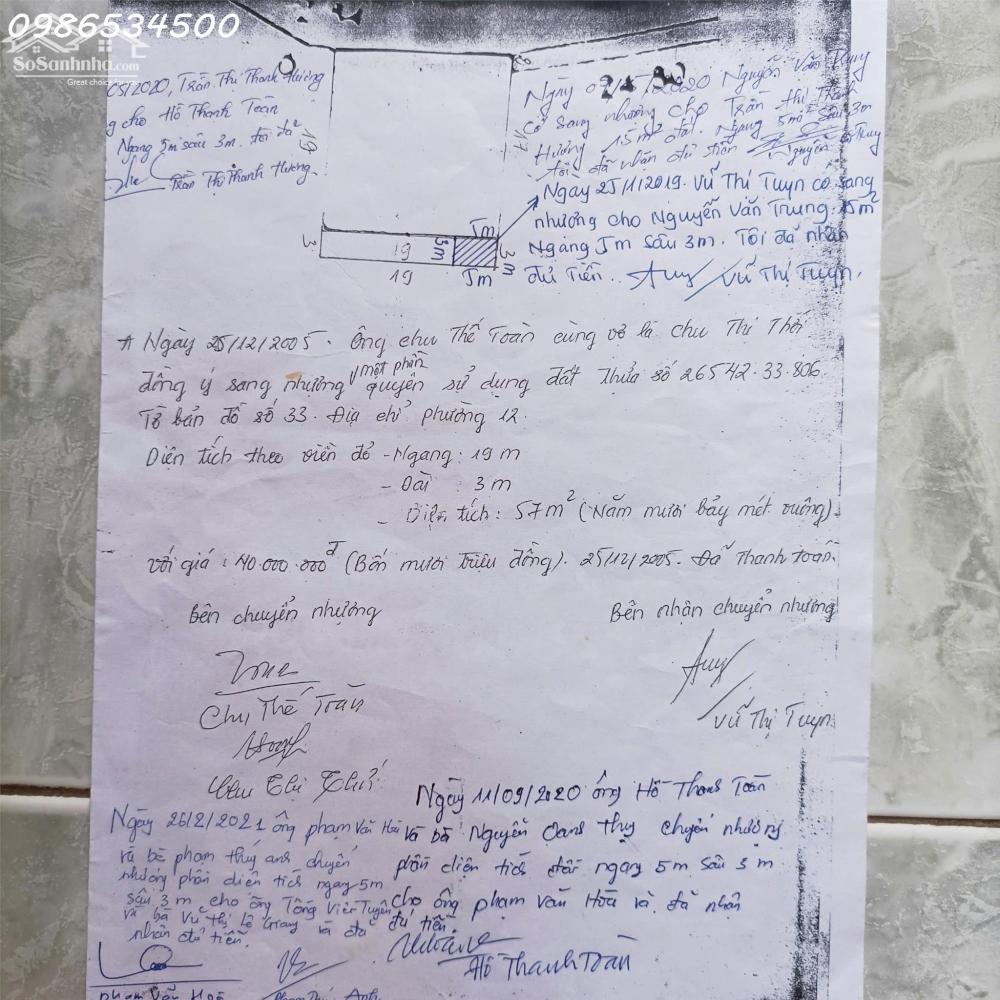 0986534500
SoSanhnha.com
Great choice
05/2020, Trần Thị Thanh Hương
g cho Hồ Thanh Toàn
Ngang 5m sâu 3m. tôi đã
Trần Thị Thanh Hương.
19
17
Ngày 2020 Nguyễn Văn Trung
Có sang nhượng cho Trần Thị Thanh
Hương 15m² đất. Ngang 5m sâu 3m
tôi đã nhận đủ tiền
Nguyễn Trung
Ngày 25/11/2019. Vũ Thị Tuyn có sang
nhương cho Nguyễn Văn Trung. 15m²
Ngang 5m sâu 3m. Tôi đã nhận
đủ Tiền. Vũ Thị Tuyn.
3
19
5m
5m
3m
19
5m
* Ngày 25/12/2005. Ông chu Thế Toàn cùng vợ là chu Thị Thới
đồng ý sang nhượng một phần quyền sử dụng đất thửa số 26542.33.806.
Tờ bản đồ số 33. Địa chỉ phường 12.
Diện tích theo viền đỏ - Ngang: 19 m
- Dài : 3 m
- Diện tích: 57m² (Năm mươi bảy mét vuông)
với giá: 40.000.000đ (Bốn mươi triệu đồng). 25/12/2005. Đã Thanh toán.
Bên chuyển nhượng
Bên nhận chuyển nhượng
Chu Thế Toàn
Vũ Thị Tuyn
Chu Thị
Ngày 11/09/2020 ông Hồ Thanh Toàn
và bà Nguyễn Oanh Thụy chuyển nhượng
phần diện tích đất ngang 5m sâu 3m
cho ông phạm Văn Hoà và đã nhận
đủ tiền.
Hồ Thanh Toàn
Ngày 26/2/2021 ông phạm Văn Hoà
và bà phạm thuý anh chuyển
nhượng phần diện tích ngang 5m
sâu 3m cho ông Tống Viết Tuyên
và bà Vũ Thị Lệ Giang và đã
nhận đủ tiền.
phạm Văn Hoà
Phạm Thuý Anh